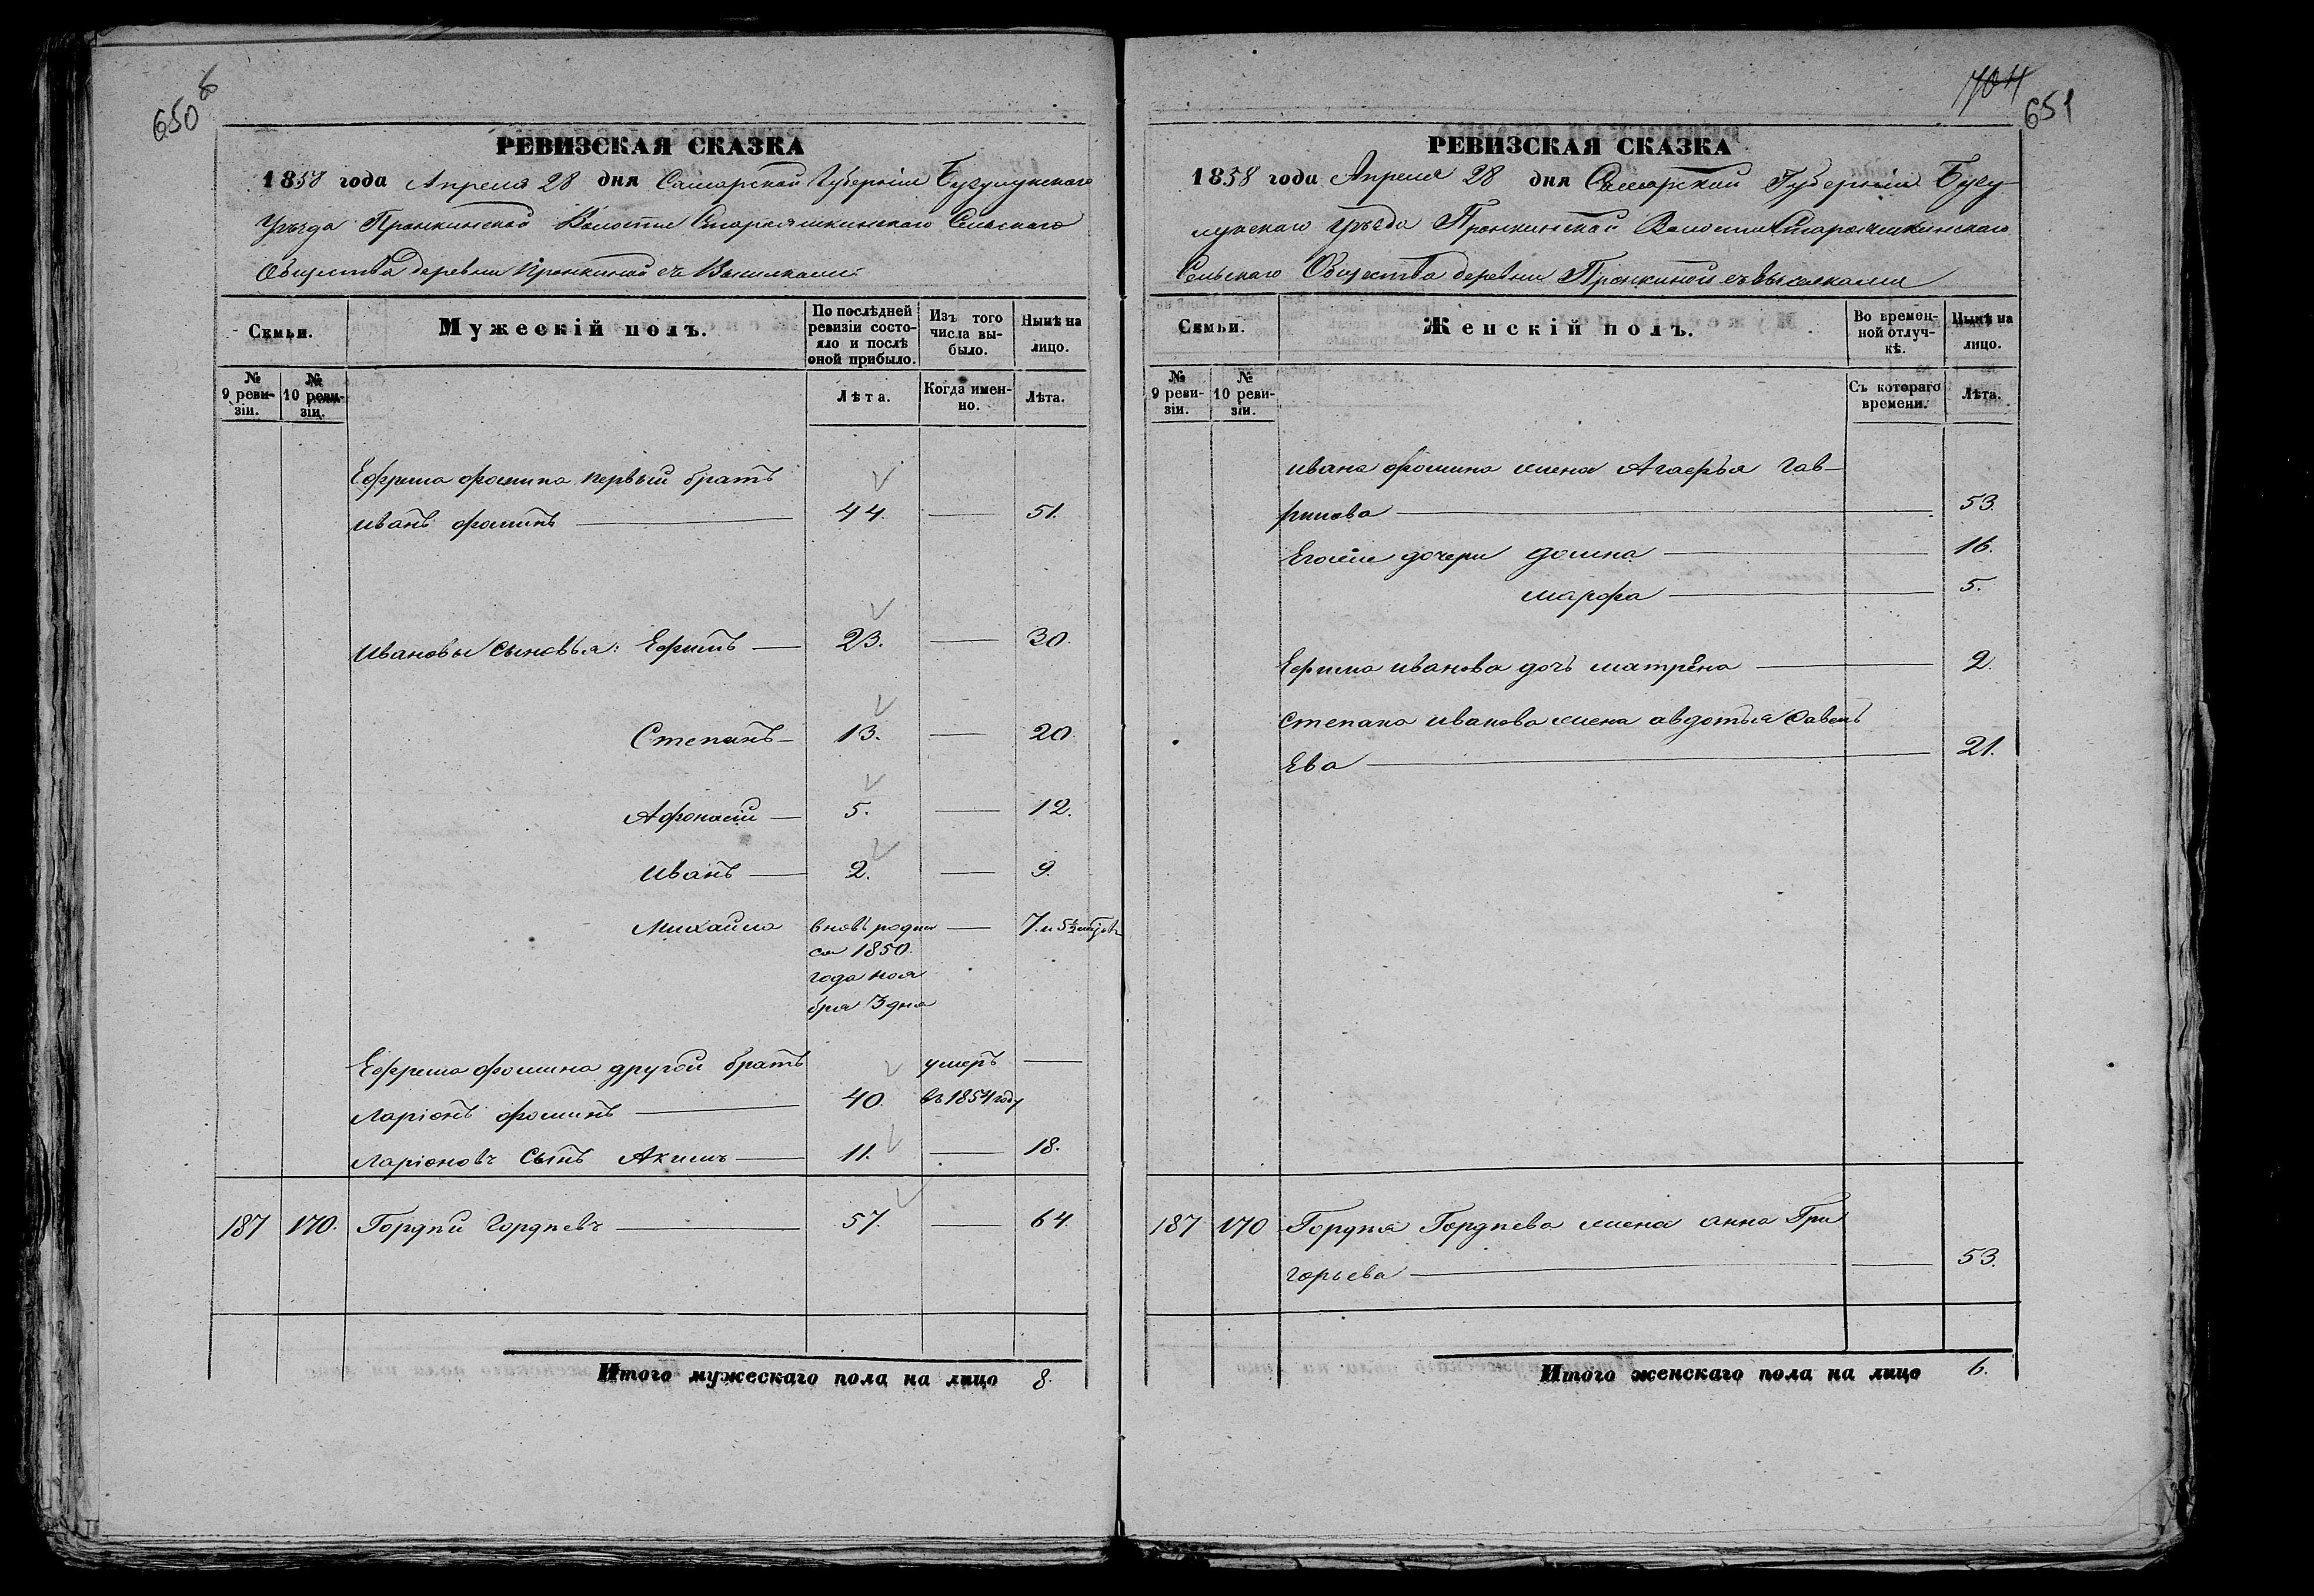 650 б
РЕВИЗСКАЯ СКАЗКА
1858 года Апреля 28 дня Самарской Губерніи Бугулукскаго
Уѣзда Пронкинской Волости Старояшкинскаго Сельскаго
Общества деревни Пронкиной съ Выселками
Семьи.
Мужескій полъ.
По послѣдней ревизіи состояло и послѣ оной прибыло.
Изъ того числа выбыло.
Нынѣ на лицо.
№ 9 ревизіи.
№ 10 ревизіи.
Лѣта.
Когда именно.
Лѣта.
Ефрема фомина первый братъ
иванъ фоминъ 44. 51.
Ивановы сыновья: Ефимъ 23. 30.
Степанъ 13. 20.
Афонасий 5. 12.
иванъ 2. 9.
Михайло вновь родил 7. и 5½
ся 1850.
года ноя
бря 3 дня
Ефрема фомина другой братъ умеръ
ларіонъ фоминъ 40. въ 1854 году
ларіоновъ сынъ Акимъ 11. 18.
187 170. Гордѣй Гордѣевъ 57. 64.
Итого мужескаго пола на лицо 8.
704
651
РЕВИЗСКАЯ СКАЗКА
1858 года Апреля 28 дня Самарской Губерніи Бугу-
лукскаго уѣзда Пронкинской Волости Старояшкинскаго
Сельскаго Общества деревни Пронкиной съ выселками
Семьи.
Женскій полъ.
Во временной отлучкѣ.
Нынѣ на лицо.
№ 9 ревизіи.
№ 10 ревизіи.
Съ котораго времени.
Лѣта.
ивана фомина жена Агафья Гав-
рилова 53.
Егоже дочери домна 16.
марфа 5.
Ефима иванова дочь матрена 2.
степана иванова жена авдотья Савель
Ева 21.
187 170 Гордѣя Гордѣева жена анна Гри
горьева 53.
Итого женскаго пола на лицо 6.